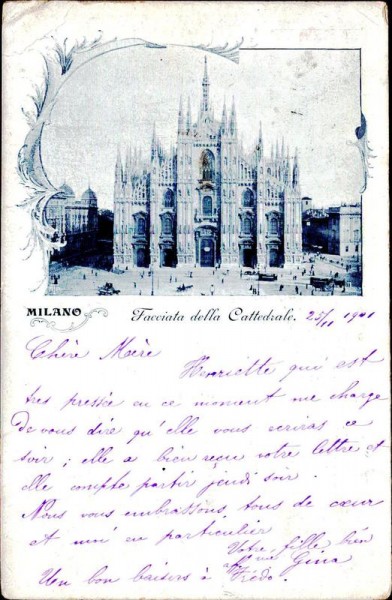 MILANO Facciata della Cattedrale. 25/11 1901
Chère Mère
Henriette qui est
tres pressée en ce moment me charge
de vous dire qu'elle vous ecriras ce
soir ; elle a bien reçu votre lettre et
elle compte partir jeudi soir.
Nous vous embrassons tous de cœur
et moi en particulier
Votre fille bien
Gina
Un bon baisers à Frédo.